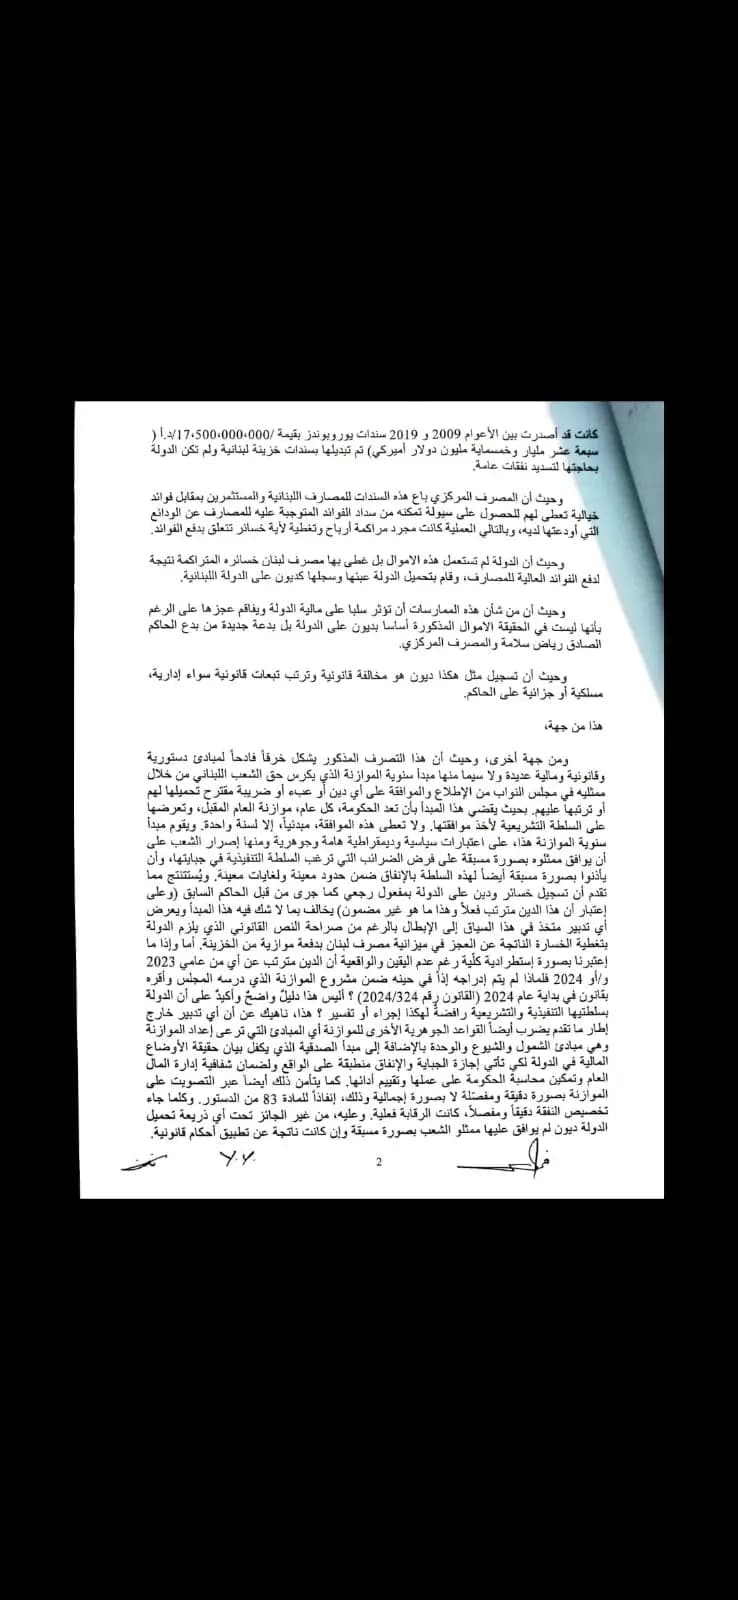 كانت قد أصدرت بين الأعوام 2009 و 2019 سندات يوروبوندز بقيمة /17،500،000،000/د.أ (
سبعة عشر مليار وخمسماية مليون دولار أميركي) تم تبديلها بسندات خزينة لبنانية ولم تكن الدولة
بحاجتها لتسديد نفقات عامة.
وحيث أن المصرف المركزي باع هذه السندات للمصارف اللبنانية والمستثمرين بمقابل فوائد
خيالية تعطى لهم للحصول على سيولة تمكنه من سداد الفوائد المتوجبة عليه للمصارف عن الودائع
التي أودعتها لديه، وبالتالي العملية كانت مجرد مراكمة أرباح وتغطية لأية خسائر تتعلق بدفع الفوائد.
وحيث أن الدولة لم تستعمل هذه الاموال بل غطى بها مصرف لبنان خسائره المتراكمة نتيجة
لدفع الفوائد العالية للمصارف، وقام بتحميل الدولة عبئها وسجلها كديون على الدولة اللبنانية.
وحيث أن من شأن هذه الممارسات أن تؤثر سلبا على مالية الدولة ويفاقم عجزها على الرغم
بأنها ليست في الحقيقة الاموال المذكورة أساسا بديون على الدولة بل بدعة جديدة من بدع الحاكم
الصادق رياض سلامة والمصرف المركزي.
وحيث أن تسجيل مثل هكذا ديون هو مخالفة قانونية وترتب تبعات قانونية سواء إدارية،
مسلكية أو جزائية على الحاكم.
هذا من جهة،
ومن جهة أخرى، وحيث أن هذا التصرف المذكور يشكل خرقاً فادحاً لمبادئ دستورية
وقانونية ومالية عديدة ولا سيما منها مبدأ سنوية الموازنة الذي يكرس حق الشعب اللبناني من خلال
ممثليه في مجلس النواب من الإطلاع والموافقة على أي دين أو عبء أو ضريبة مقترح تحميلها لهم
أو ترتبها عليهم. بحيث يقضي هذا المبدأ بأن تعد الحكومة، كل عام، موازنة العام المقبل، وتعرضها
على السلطة التشريعية لأخذ موافقتها. ولا تعطى هذه الموافقة، مبدئياً، إلا لسنة واحدة. ويقوم مبدأ
سنوية الموازنة هذا، على اعتبارات سياسية وديمقراطية هامة وجوهرية ومنها إصرار الشعب على
أن يوافق ممثلوه بصورة مسبقة على فرض الضرائب التي ترغب السلطة التنفيذية في جبايتها، وأن
يأذنوا بصورة مسبقة أيضاً لهذه السلطة بالإنفاق ضمن حدود معينة ولغايات معينة. ويُستنتج مما
تقدم أن تسجيل خسائر ودين على الدولة بمفعول رجعي كما جرى من قبل الحاكم السابق (وعلى
إعتبار أن هذا الدين مترتب فعلاً وهذا ما هو غير مضمون) يخالف بما لا شك فيه هذا المبدأ ويعرض
أي تدبير متخذ في هذا السياق إلى الإبطال بالرغم من صراحة النص القانوني الذي يلزم الدولة
بتغطية الخسارة الناتجة عن العجز في ميزانية مصرف لبنان بدفعة موازية من الخزينة. أما وإذا ما
إعتبرنا بصورة إستطرادية كلّية رغم عدم اليقين والواقعية أن الدين مترتب عن أي من عامي 2023
و/أو 2024 فلماذا لم يتم إدراجه إذاً في حينه ضمن مشروع الموازنة الذي درسه المجلس وأقره
بقانون في بداية عام 2024 (القانون رقم 2024/324) ؟ أليس هذا دليلٌ واضحٌ وأكيدٌ على أن الدولة
بسلطتيها التنفيذية والتشريعية رافضةٌ لهكذا إجراء أو تفسير ؟ هذا، ناهيك عن أن أي تدبير خارج
إطار ما تقدم يضرب أيضاً القواعد الجوهرية الأخرى للموازنة أي المبادئ التي ترعى إعداد الموازنة
وهي مبادئ الشمول والشيوع والوحدة بالإضافة إلى مبدأ الصدقية الذي يكفل بيان حقيقة الأوضاع
المالية في الدولة لكي تأتي إجازة الجباية والإنفاق منطبقة على الواقع ولضمان شفافية إدارة المال
العام وتمكين محاسبة الحكومة على عملها وتقييم أدائها. كما يتأمن ذلك أيضاً عبر التصويت على
الموازنة بصورة دقيقة ومفصّلة لا بصورة إجمالية وذلك، إنفاذاً للمادة 83 من الدستور. وكلما جاء
تخصيص النفقة دقيقاً ومفصلاً، كانت الرقابة فعلية. وعليه، من غير الجائز تحت أي ذريعة تحميل
الدولة ديون لم يوافق عليها ممثلو الشعب بصورة مسبقة وإن كانت ناتجة عن تطبيق أحكام قانونية.
2